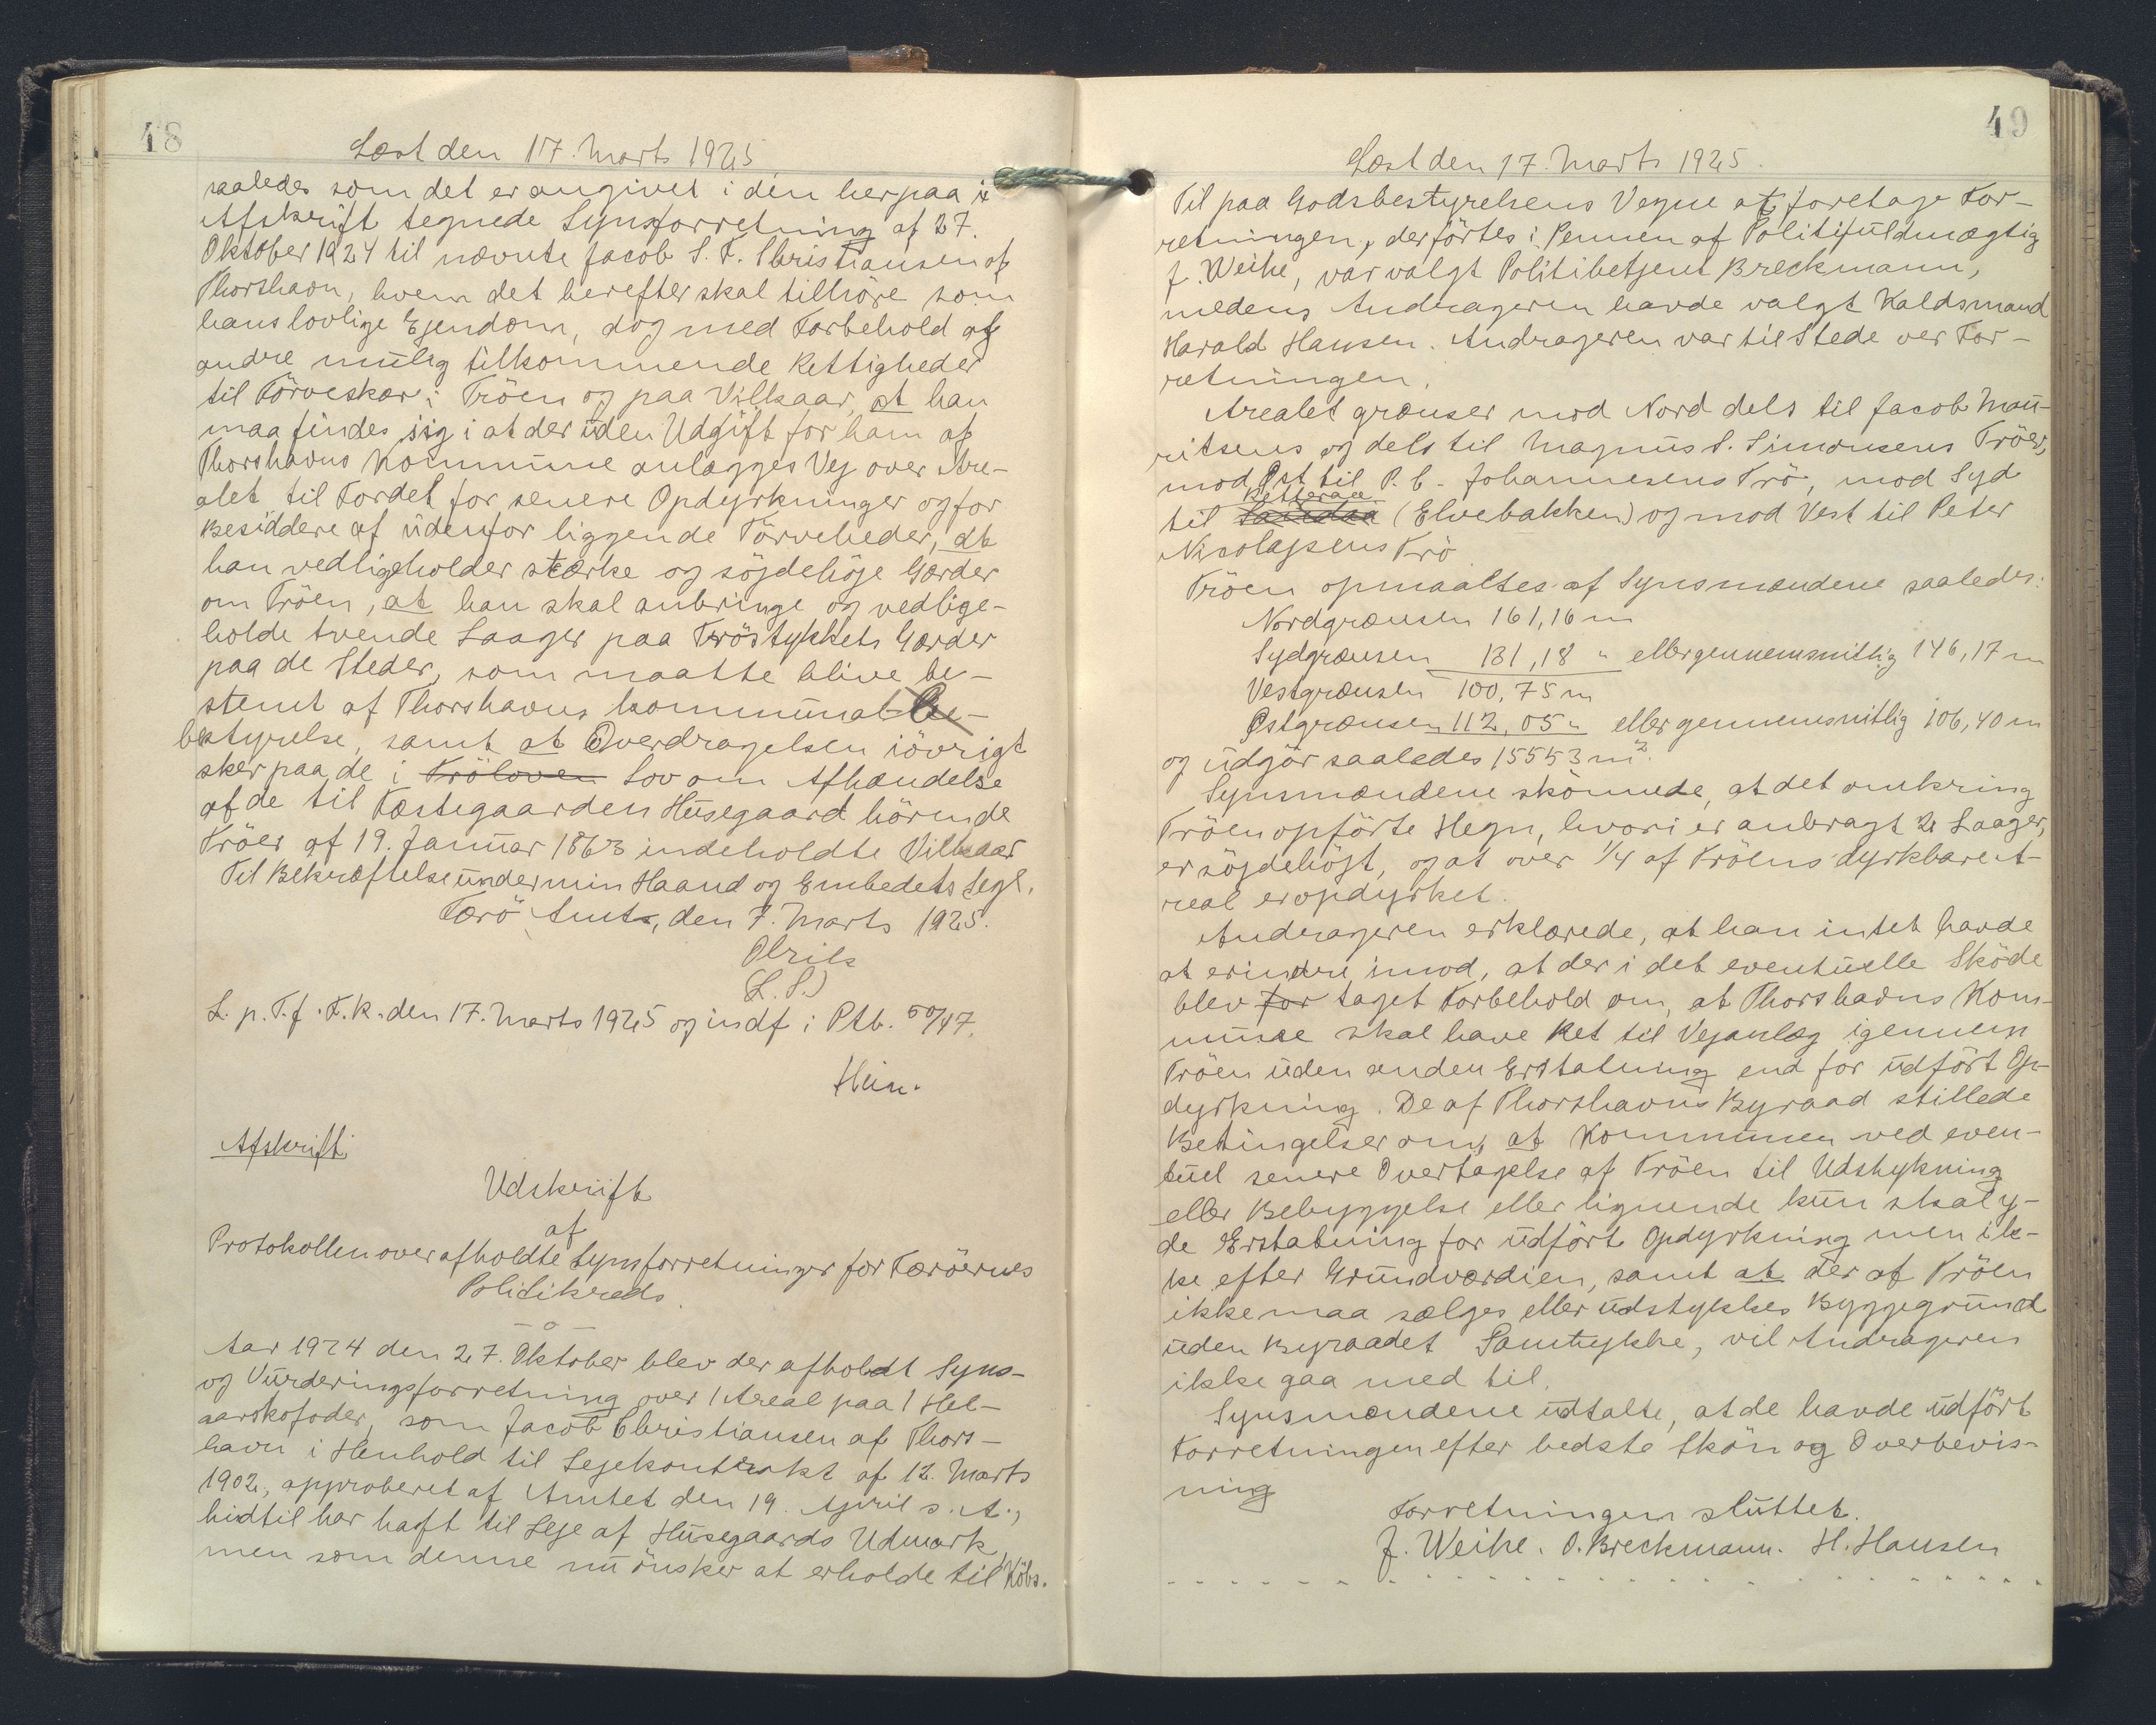 48
Læst den 17. Marts 1925
saaledes som det er angivet i den herpaa i
Afskrift tegnede Synsforretning af 27.
Oktober 1924 til nævnte Jacob S. F. Christiansen af
Thorshavn, hvem det herefter skal tilhöre som
hans lovlige Ejendom, dog med Forbehold af
andre mulig tilkommende Rettigheder
til Törveskær i Tröen og paa Vilkaar, at han
maa findes sig i at der uden Udgift for ham af
Thorshavns Kommune anlægges Vej over Are-
alet til Fordel for senere Opdyrkninger og for
Besiddere af udenfor liggende Törveheder, at
han vedligeholder stærke og söjdehöje Gærder
om Tröen, at han skal anbringe og vedlige-
holde tvende Laager paa Tröstykkets Gærder
paa de Steder, som maatte blive be-
stemt af Thorshavns kommunal be-
bestyrelse, samt at Overdragelsen iövrigt
sker paa de i Tröloven Lov om Afhændelse
af de til Fæstegaarden Husegaard hörende
Tröer af 19. Januar 1863 indeholdte Vilkaar
Til Bekræftelse under min Haand og Embedets Segl.
Færö Amt, den 7. Marts 1925.
Olrik
(L. S.)
L. p. T. f. F. K. den 17. Marts 1925 og indf i Ptb. 50/47.
Hein.
Afskrift.
Udskrift
af
Protokollen over afholdte Synsforretninger for Færöernes
Politikreds.
-o-
Aar 1924 den 27. Oktober blev der afholdt Syns-
og Vurderingsforretning over 1 Areal paa 1 Hel-
aarskofoder, som Jacob Christiansen af Thors-
havn i Henhold til Lejekontrakt af 12. Marts
1902, approberet af Amtet den 19. April s. A.,
hidtil har haft til Leje af Husegaards Udmark,
men som denne nu önsker at erholde til Köbs.
49
Læst den 17. Marts 1925.
Til paa Godsbestyrelsens Vegne at foretage For-
retningen, der förtes i Pennen af Politifuldmægtig
J. Weihe, var valgt Politibetjent Breckmann,
medens Andrageren havde valgt Kaldsmand
Harald Hansen. Andrageren var til Stede ver For-
retningen.
Arealet grænser mod Nord dels til Jacob Mau-
ritsens og dels til Magnus S. Simonsens Tröer,
mod Øst til P. C. Johannesens Trö, mod Syd
til (Elvebakken) og mod Vest til Peter
Nicolajsens Trö
Tröen opmaaltes af Synsmændene saaledes:
Nordgrænsen 161,16 m
Sydgrænsen 131,18 " eller gennemsnitlig 146,17 m
Vestgrænsen 100,75 m
Østgrænsen 112,05 " eller gennemsnitlig 106,40 m
og udgör saaledes 15553 m².
Synsmændene skönnede, at det omkring
Tröen opförte Hegn, hvori er anbragt 2 Laager,
er söjdehöjt, og at over 1/4 af Tröens dyrkbare A-
real er opdyrket.
Andrageren erklærede, at han intet havde
at erindre imod, at der i det eventuelle Sköde
blev for taget Forbehold om, at Thorshavns Kom-
mune skal have Ret til Vejanlæg igennem
Tröen uden anden Erstatning end for udfört Op-
dyrkning. De af Thorshavns Byraad stillede
Betingelser om, at Kommunen ved even-
tuel senere Overtagelse af Tröen til Udstykning
eller Bebyggelse eller lignende kun skal y-
de Erstatning for udfört Opdyrkning men ik-
ke efter Grundværdien, samt at der af Tröen
ikke maa sælges eller udstykkes Byggegrund
uden Byraadet Samtykke, vil Andrageren
ikke gaa med til.
Synsmændene udtalte, at de havde udfört
Forretningen efter bedste Skön og Overbevis-
ning
Forretningen sluttet.
J. Weihe. O. Breckmann. H. Hansen